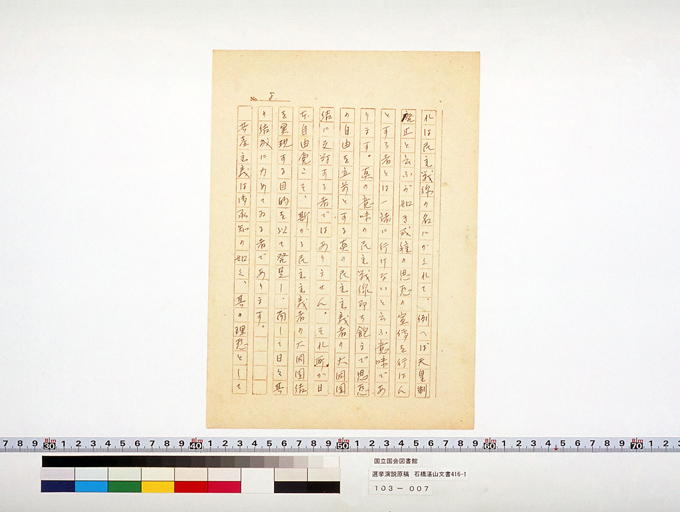 No. 8
れは民主戦線の名にかくれて、例へば天皇制
廃止と云ふが如き或種の思想の宣伝を行はん
とする者とは一緒に行けないと云ふ意味であ
ります。真の意味の民主戦線即ち飽まで思想
の自由を立前とする真の民主主義者の大同団
結に反対する者ではありません。それ所か日
本自由党こそ、斯かる民主主義者の大同団結
を実現する目的を以て発足し、而して日々其
の結成に力めてゐる者であります。
共産主義は御承知の如く、其の理想として
国立国会図書館
選挙演説原稿 石橋湛山文書416-1
103-007